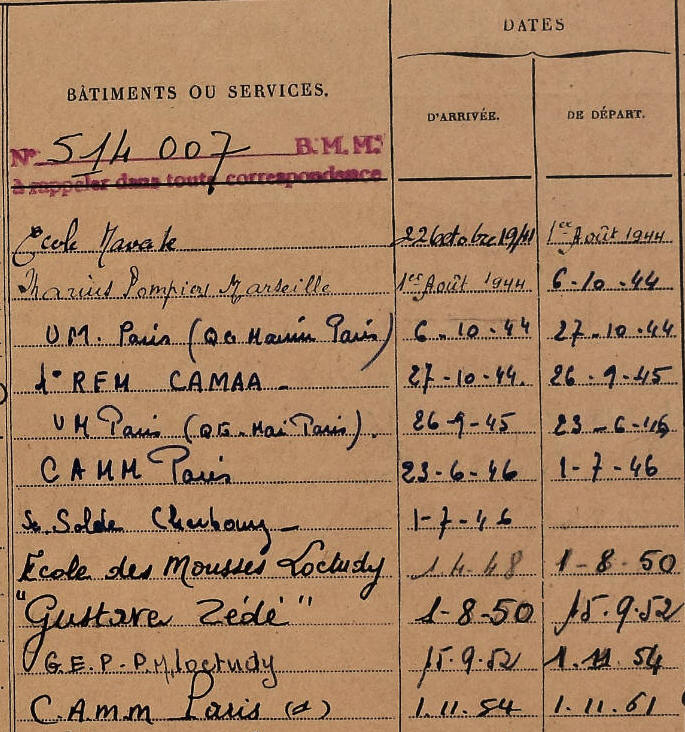 DATES
BÂTIMENTS OU SERVICES.
D'ARRIVÉE. DE DÉPART.
N° 514 007 B.M.M.
à rappeler dans toute correspondance
Ecole Navale 22 octobre 1941 1er Août 1944
Marins Pompiers Marseille 1er Août 1944 6-10-44
UM. Paris (QG Marine Paris) 6-10-44 27-10-44
1° RFM CAMAA - 27-10-44. 26-9-45
UM Paris (QG. Mar Paris). 26-9-45 23-6-46
CAMM Paris 23-6-46 1-7-46
Se Solde Cherbourg - 1-7-46
Ecole des Mousses Loctudy 1.4.48 1-8-50
"Gustave Zédé" 1-8-50 15.9.52
G.E.P-P.M. loctudy 15.9.52 1.11.54
C.A.M.M Paris 1.11.54 1.11.61